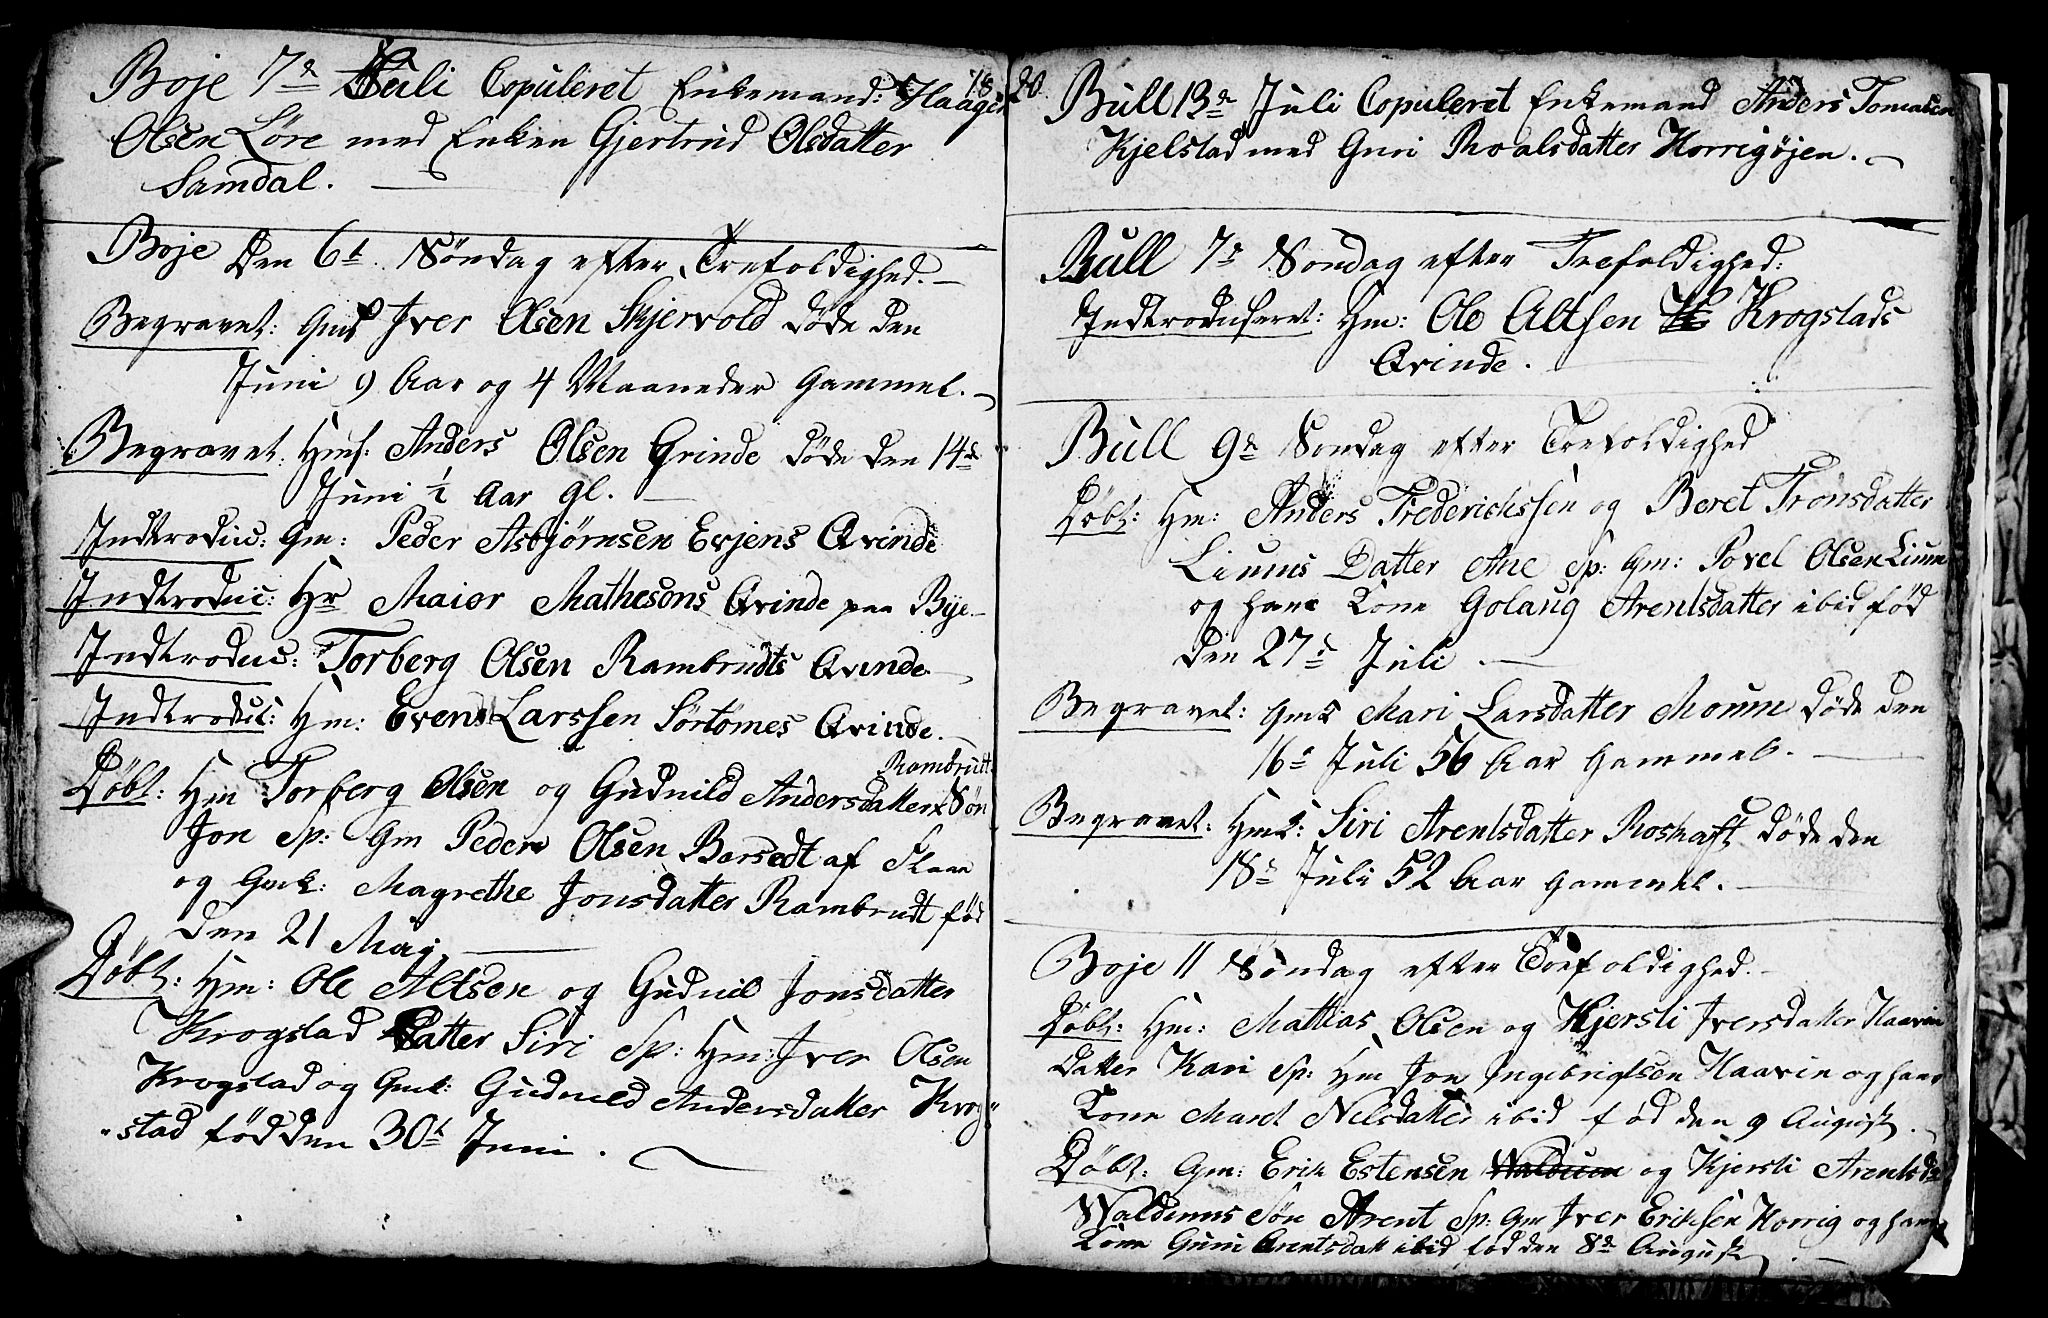 18 20.
Boje 7de Juli Copuleret Enkemand: Haagen
Olsen Løre med Enken Gjertrud Olsdatter
Samdal.
Boje Den 6t Søndag efter Trefoldighed.
Begravet: Gms Iver Olsen Skjervold døde den
Juni 9 Aar og 4 Maaneder Gammel.
Begravet: Hms: Anders Olsen Grinde døde den 14de
Juni ½ Aar gl.
Indtroduc: Gm: Peder Asbjørnsen Evjens Qvinde
Indtroduc: Hr Maior Mathesons Qvinde paa Bye
Indtroduc: Torberg Olsen Rambrudts Qvinde
Indtroduc: Hm: Evend Larssen Sørtømes Qvinde.
Døbt: Hm Torberg Olsen og Gudnild Andersdatter Rambrutt Søn
Jon Sp: Gm Peder Olsen Borsedt af Flaae
og Gmk: Magrethe Jonsdatter Rambrudt fød
den 21 Maj
Døbt: Hm: Ole Altsen og Gudnil Jonsdatter
Krogstad Datter Siri Sp: Hm: Iver Olsen
Krogstad og Gmk: Gudnild Andersdatter Krog
stad fød den 30t Juni.
Bull 13de Juli Copuleret Enkemand Anders Tomassen
Kjelstad med Guri Roalsdatter Horrigøjen.
Bull 7de Søndag efter Trefoldighed:
Indtroduseret: Hm: Ole Altsen Krogstads
Qvinde.
Bull 9de Søndag efter Trefoldighed
Døbt: Hm: Anders Frederichssen og Beret Tronsdatter
Liums Datter Ane Sp: Gm: Povel Olsen Lium
og hans Kone Golaug Arentsdatter ibid fød
den 27de Juli
Begravet: Gmk Mari Larsdatter Moum døde den
16de Juli 56 Aar Gammel.
Begravet: Hmk: Siri Arentsdatter Roshaft døde den
18de Juli 52 Aar Gammel.
Boje 11 Søndag efter Trefoldighed.
Døbt: Hm: Mattias Olsen og Kjersti Iversdatter Haavin
Datter Kari Sp: Hm Jon Ingebrigtsen Haavin og hans
Kone Maret Nilsdatter ibid fød den 9 August.
Døbt: Gm: Erik Estensen Waldum og Kjersti Arentsda
Waldums Søn Arent Sp: Gm Iver Eriksen Horrig og hans
Kone Guru Arentsdatt ibid fød den 8de August.